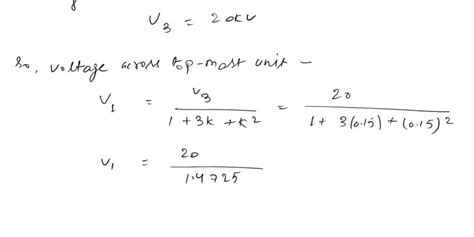 V3 = 20kV
So, voltage across top-most unit -
V1 = V3 / 1 + 3k + k^2 = 20 / 1 + 3(0.15) + (0.15)^2
V1 = 20 / 1.4725